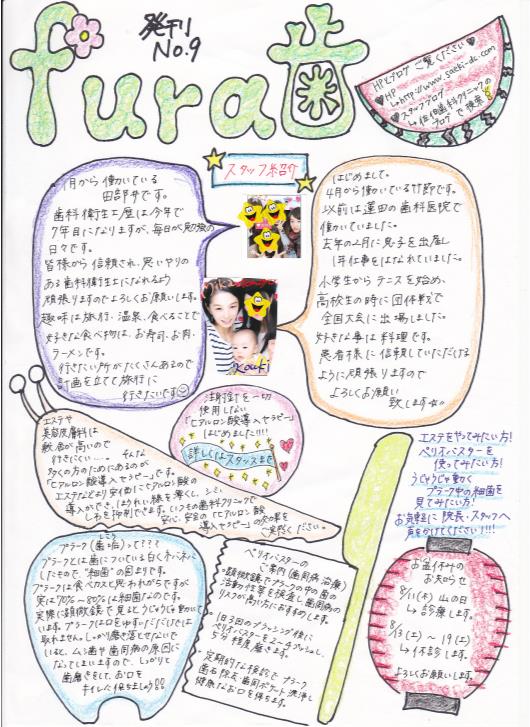 fura歯
発刊
No.9
HPとブログ ご覧ください♥
♥HP
↳http://www.saeki-dc.com
♥スタッフブログ
↳佐伯歯科クリニックの
ブログ で検索
スタッフ紹介
1月から働いている
田部井です。
歯科衛生士歴は今年で
7年目になりますが、毎日が勉強の
日々です。
皆様から信頼され、思いやりの
ある歯科衛生士になれるよう
頑張りますのでよろしくお願いします。
趣味は旅行、温泉、食べることで
好きな食べ物は、お寿司、お肉、
ラーメンです。
行きたい所がたくさんあるので
計画を立てて旅行に
行きたいです
はじめまして。
4月から働いている竹節です。
以前は蓮田の歯科医院で
働いていました。
去年の2月に息子を出産し
1年仕事をはなれていました。
小学生から テニスを始め、
高校生の時に団体戦で
全国大会に出場しました。
好きな事は料理です。
患者様に信頼していただける
ように頑張りますので
よろしくお願い
致します☆
Kouki
注射針を一切
使用しない
「ヒアルロン酸導入セラピー」
はじめました!!!!
詳しくはスタッフまで
エステや
美容皮膚科は
敷居が高いので
行きにくい…。そんな
多くの方のためにあるのが
「ヒアルロン酸導入セラピー」です。
エステなどより安価にヒアルロン酸の
導入ができ、ほうれい線を薄くし、シミ、
しわを抑制できます。いつもの歯科クリニックで
安心、安全の「ヒアルロン酸
導入セラピー」の効果を
ご実感ください。
エステをやってみたい方!
ペリオバスターを
使ってみたい方!
うじゃうじゃ動く
プラーク中の細菌を
見てみたい方!
お気軽に 院長・スタッフへ
声をかけてください!!!
しこう
プラーク(歯垢)って????
プラークとは歯についている白くネバネバ
したもので、"細菌"の固まりです。
プラークは食べカスと思われがちですが
実は70%~80%は細菌なのです。
実際に顕微鏡で見るとうじゃうじゃ動いて
います。プラークは口をゆすいだだけでは
取れません。しっかり磨き落とせないで
いると、ムシ歯や歯周病の原因に
なってしまいますので、しっかりと
歯磨きをして、お口を
キレイに保ちましょう!!
ペリオバスターの
ご案内(歯周病治療)
・顕微鏡でプラークの中の菌の
活動性等を検査し歯周病の
リスクの高い方におすすめします。
・1日3回のブラッシング後に
ペリオバスターを2~4プッシュし、
5分程度磨きます。
・定期的な検診で プラーク
歯石除去 歯周ポケット洗浄し
健康なお口を保ちます。
お盆休みの
お知らせ
8/11(木)山の日
→診療します。
8/13(土)~19(土)
→休診します。
よろしくお願いします!